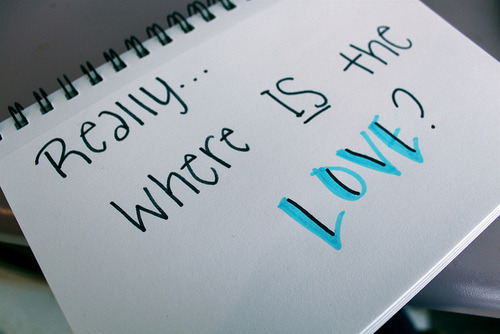 Really...
where IS the
LOVE?